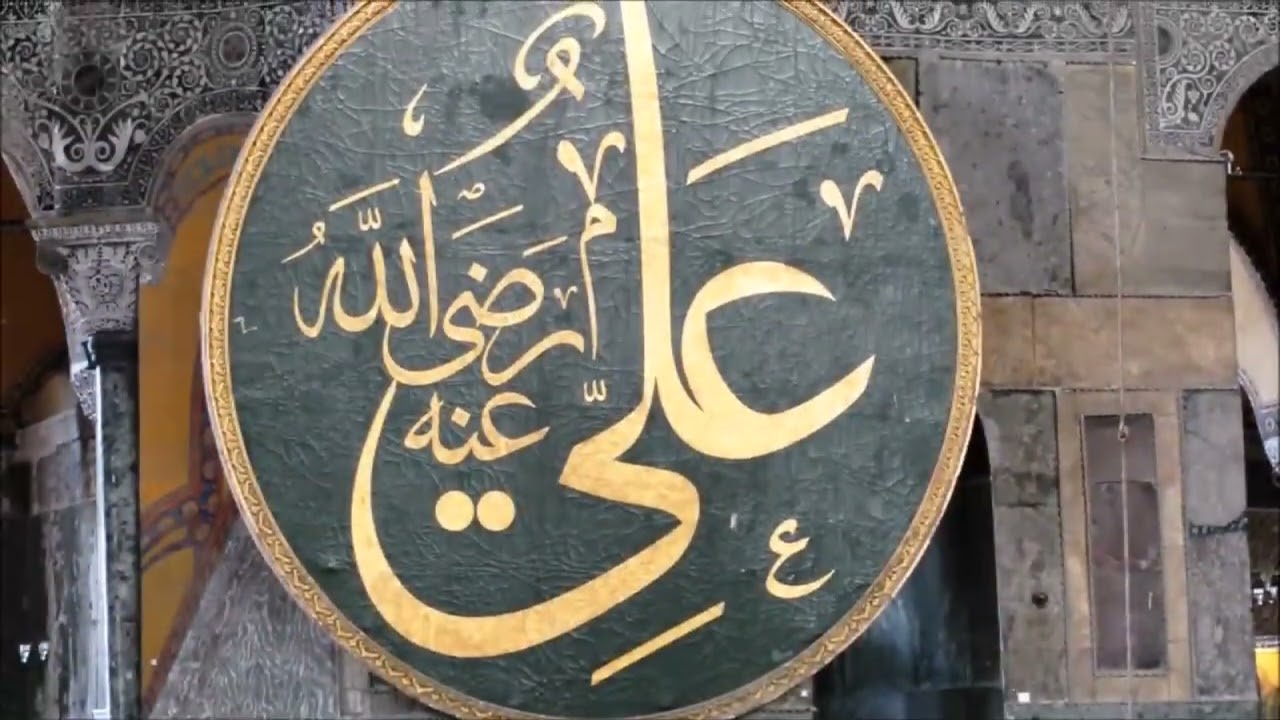 عَلِيٌّ
رَضِيَ اللهُ
عنه